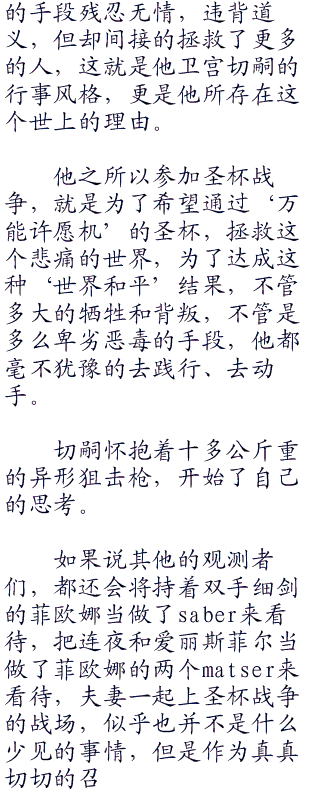 的手段残忍无情，违背道
义，但却间接的拯救了更多
的人，这就是他卫宫切嗣的
行事风格，更是他所存在这
个世上的理由。
他之所以参加圣杯战
争，就是为了希望通过‘万
能许愿机’的圣杯，拯救这
个悲痛的世界，为了达成这
种‘世界和平’结果，不管
多大的牺牲和背叛，不管是
多么卑劣恶毒的手段，他都
毫不犹豫的去践行、去动
手。
切嗣怀抱着十多公斤重
的异形狙击枪，开始了自己
的思考。
如果说其他的观测者
们，都还会将持着双手细剑
的菲欧娜当做了saber来看
待，把连夜和爱丽斯菲尔当
做了菲欧娜的两个matser来
看待，夫妻一起上圣杯战争
的战场，似乎也并不是什么
少见的事情，但是作为真真
切切的召